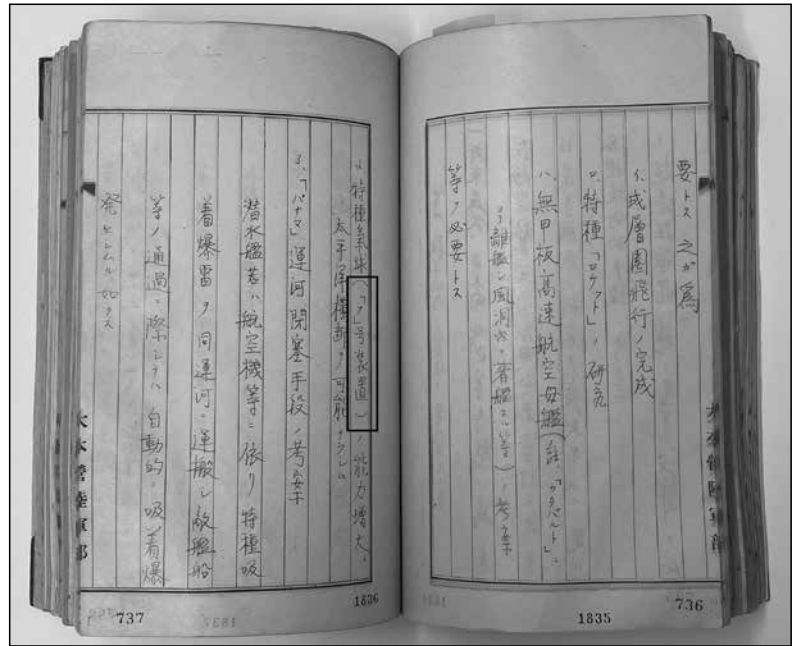 要トス 之ガ為
イ、成層圏飛行ノ完成
ロ、特種「ロケット」ノ研究
ハ、無甲板高速航空母艦(註、「カタパルト」ニ
ヨリ離艦シ風洞内ニ着艦スルモノ)ノ考案
等ヲ必要トス
大本営陸軍部
736
1835
特種気球(「フ」号装置)ノ能力増大、
太平洋横断ヲ可能ナラシム
3、「パナマ」運河閉塞手段ノ考案
潜水艦若ハ航空機等ニ依リ特種吸
着爆雷ヲ同運河ニ運搬シ敵艦船
等ノ通過ニ際シテハ自動的ニ吸着爆
発セシムル如クス
大本営陸軍部
1836
737